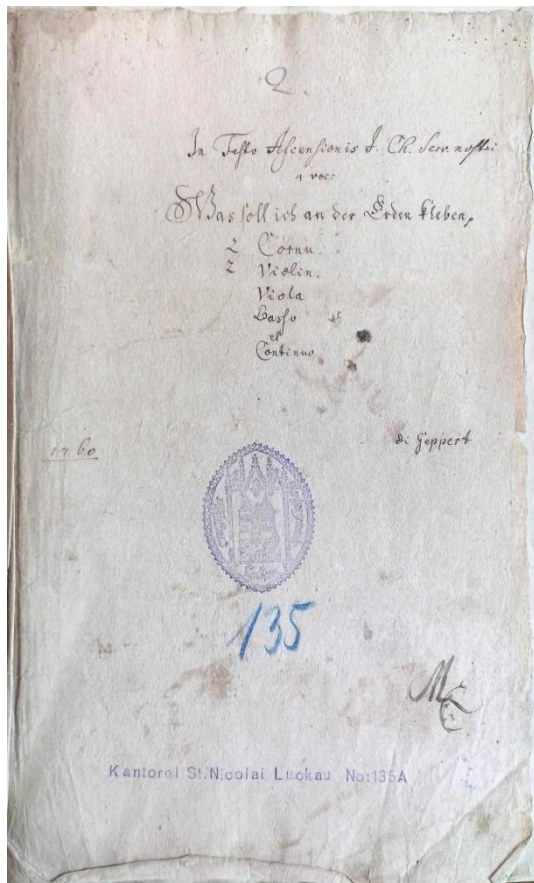 2.
In Festo Ascensionis J. Ch. Serv. nostri
4 voc:
Was soll ich an der Erden kleben,
2 Cornu.
2 Violin.
Viola
Basso
et
Continuo
di Geppert
1760
135
Kantorei St.Nicolai Luckau No:135A